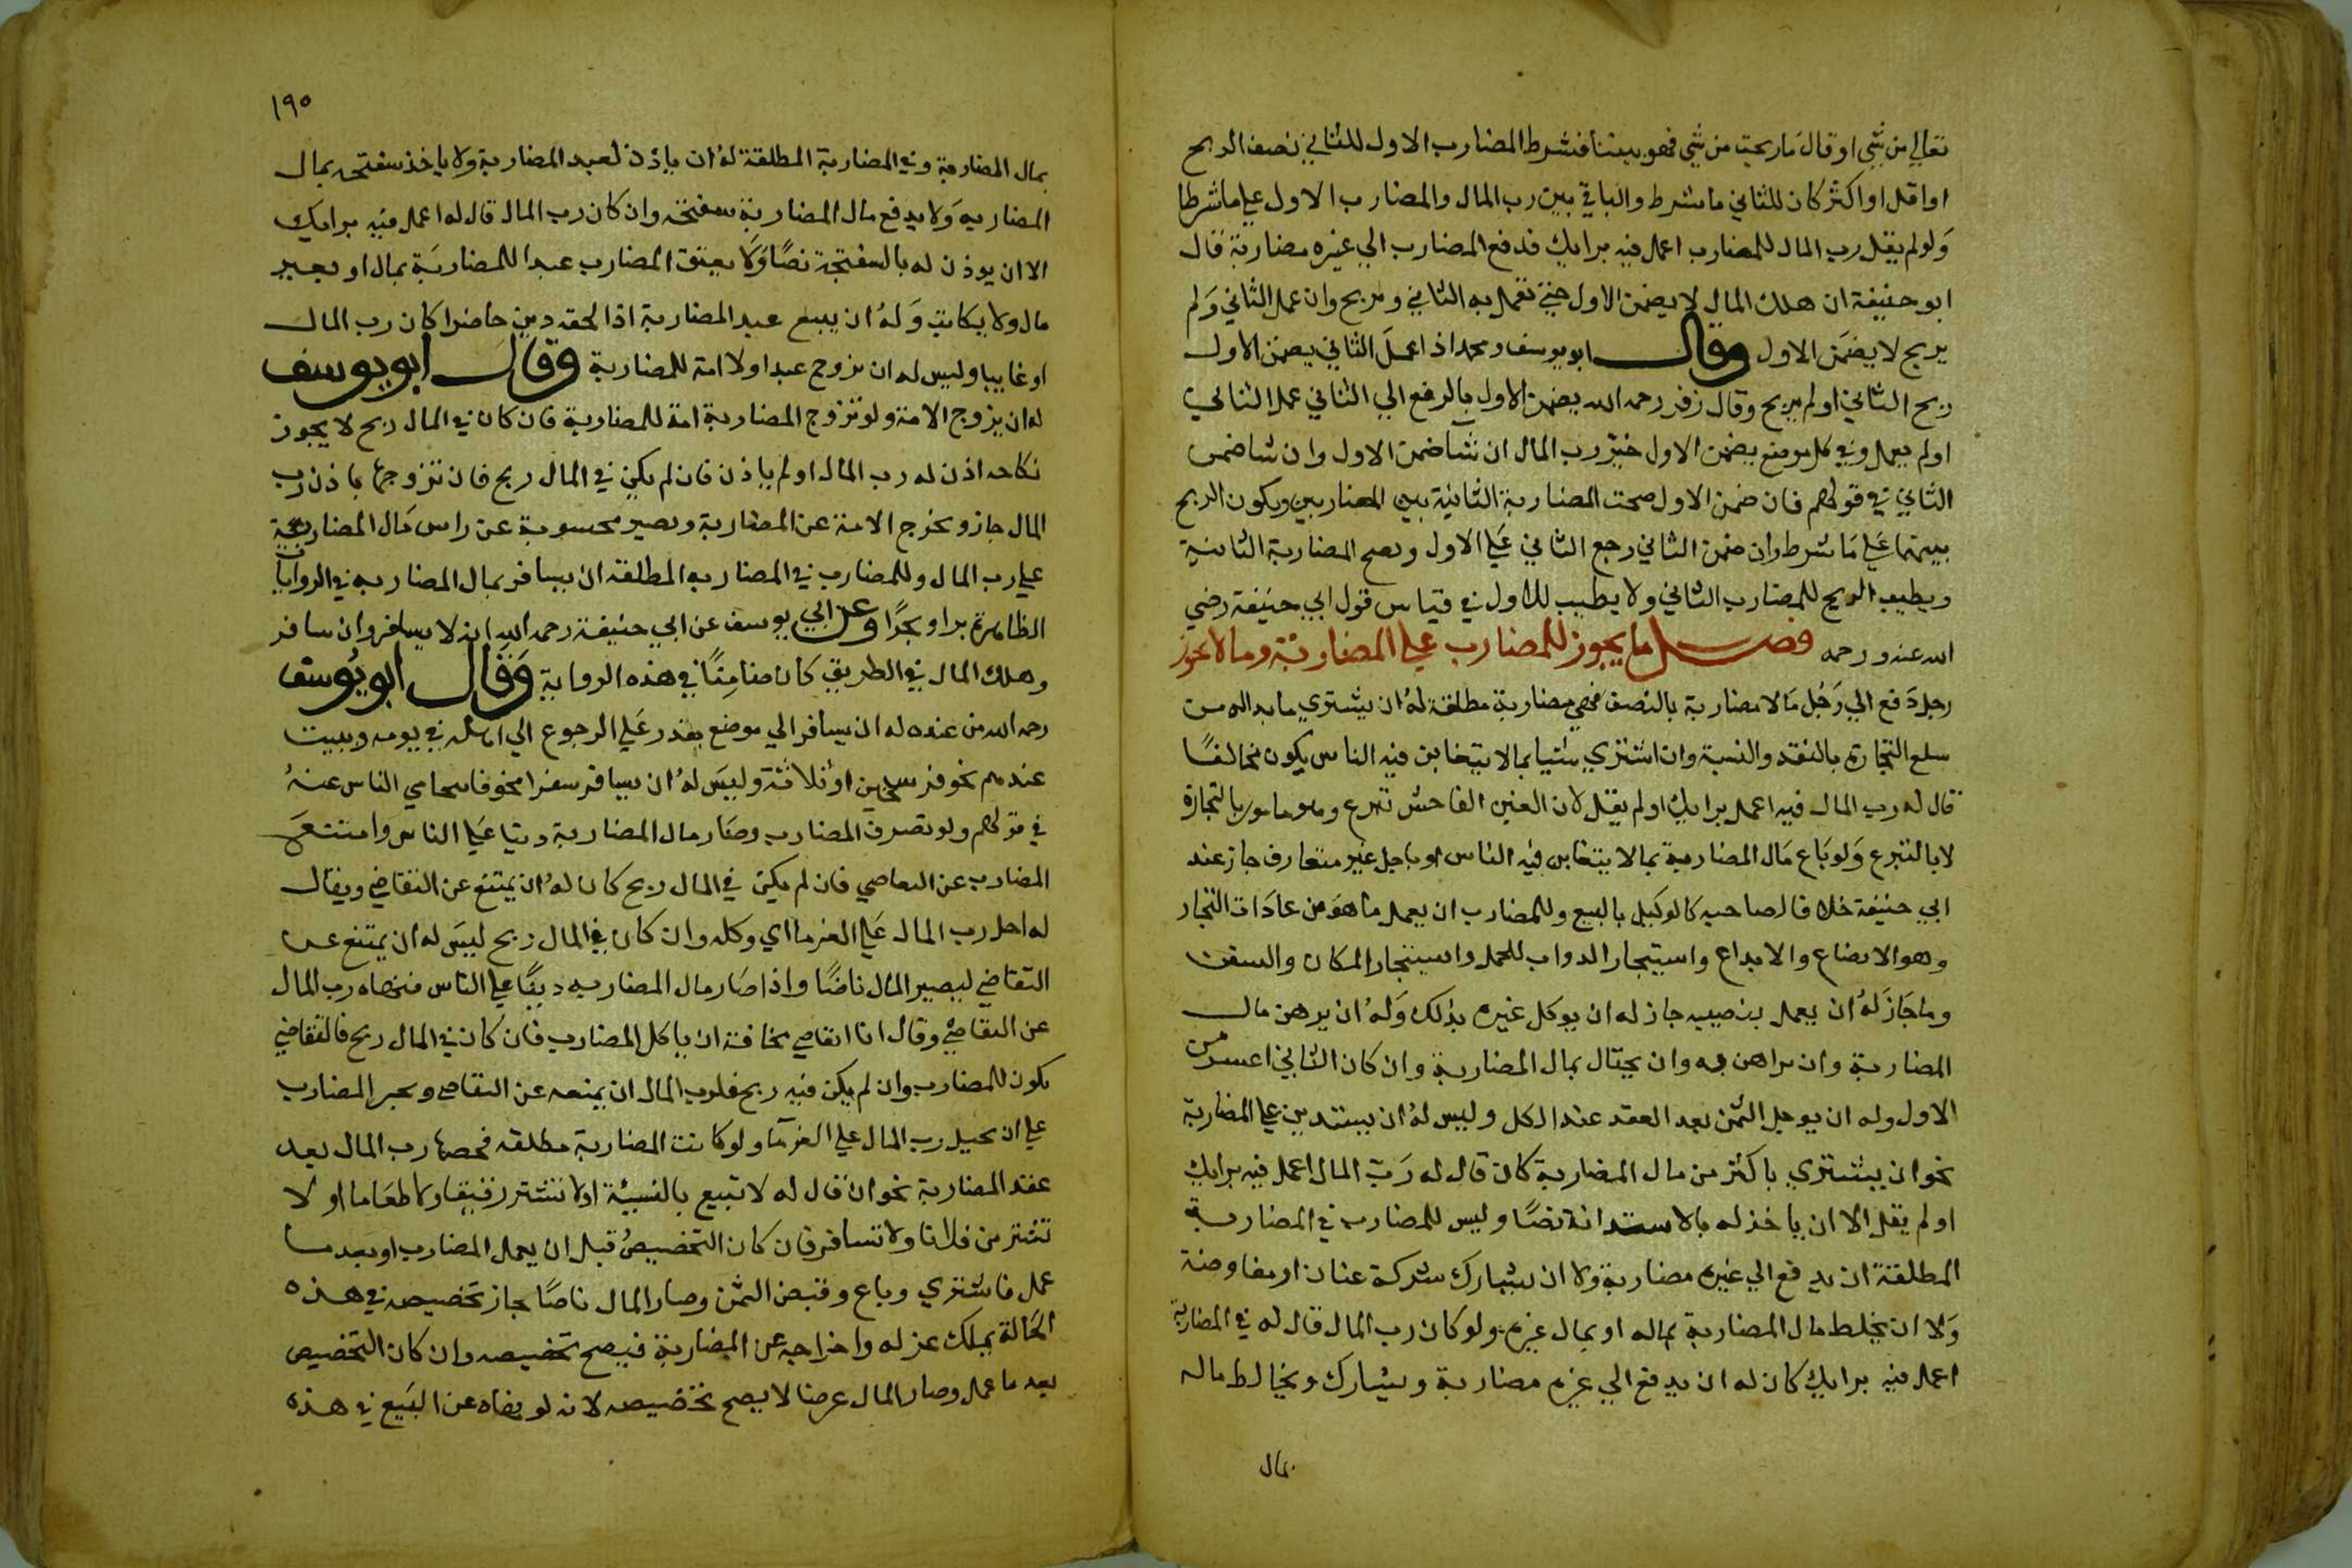 تعالي من شي او قال ما ربحت من شي فهو بيننا فشرط المضارب الاول للثاني نصف الربح
او اقل او اكثر كان للثاني ما شرط والباقي بين رب المال والمضارب الاول علي ما شرطا
ولو لم يقل رب المال للمضارب اعمل فيه برايك فدفع المضارب الي غيره مضاربة قال
ابو حنيفة ان هلك المال لا يضمن الاول حتي يعمل به الثاني ويربح وان عمل الثاني ولم
يربح لا يضمن الاول وقال ابو يوسف ومحمد اذا عمل الثاني يضمن الاول
ربح الثاني او لم يربح وقال زفر رحمه الله يضمن الاول بالدفع الي الثاني عمل الثاني
او لم يعمل وفي كل موضع يضمن الاول خير رب المال ان شا ضمن الاول وان شا ضمن
الثاني في قولهم فان ضمن الاول صحت المضاربة الثانية بين المضاربين ويكون الربح
بينهما علي ما شرط وان ضمن الثاني رجع الثاني علي الاول وتصح المضاربة الثانية
ويطيب الربح للمضارب الثاني ولا يطيب للاول في قياس قول ابي حنيفة رضي
الله عنه ورحمه فصل ما يجوز للمضارب علي المضاربة وما لا يجوز
رجل دفع الي رجل مالا مضاربة بالنصف فهي مضاربة مطلقة له ان يشتري ما بدا له من
سلع التجارة بالنقد والنسية وان اشتري شيا بما لا يتغابن فيه الناس يكون مخالفا
قال له رب المال فيه اعمل برايك او لم يقل لان الغبن الفاحش تبرع وهو مامور بالتجارة
لا بالتبرع ولو باع مال المضاربة بما لا يتغابن فيه الناس او باجل غير متعارف جاز عند
ابي حنيفة خلا فا لصاحبيه كالوكيل بالبيع وللمضارب ان يعمل ما هو من عادات التجار
وهو الابضاع والايداع واستيجار الدواب للحمل واستيجار المكان والسفن
وما جاز له ان يعمل بنصيبه جاز له ان يوكل غيره بذلك وله ان يرهن مال
المضاربة وان يراهن به وان يحتال بمال المضاربة وان كان الثاني اعسر من
الاول وله ان يوجل الثمن بعد العقد عند الكل وليس له ان يستدين علي المضاربة
نحو ان يشتري باكثر من مال المضاربة كان قال له رب المال اعمل فيه برايك
او لم يقل الا ان ياخذ له بالاستدانة نصا وليس للمضارب في المضاربة
المطلقة ان يدفع الي غيره مضاربة ولا ان يشارك شركة عنان او مفاوضة
ولا ان يخلط مال المضاربة بماله او بمال غيره ولو كان رب المال قال له في المضاربة
اعمل فيه برايك كان له ان يدفع الي غيره مضاربة ويشارك ويخالط ماله
بمال
١٩٥
بمال المضاربة وفي المضاربة المطلقة له ان ياذن لعبد المضاربة ولا ياخذ سفتجه بمال
المضاربه ولا يدفع مال المضاربة سفتجه وان كان رب المال قال له اعمل فيه برايك
الا ان يوذن له بالسفتجة نصا ولا يعتق المضارب عبدا للمضاربة بمال او بغير
مال ولا يكاتب وله ان يبيع عبد المضاربة اذا لحقه دين حاضرا كان رب المال
او غايبا وليس له ان يزوج عبدا ولا امة للمضاربة وقال ابو يوسف
له ان يزوج الامة ولو تزوج المضاربة امة للمضاربة فان كان في المال ربح لا يجوز
نكاحه اذن له رب المال او لم ياذن فان لم يكن في المال ربح فان تزوجها باذن رب
المال جاز وتخرج الامة عن المضاربة وتصير محسوبة عن راس مال المضاربة
علي رب المال وللمضارب في المضاربه المطلقة ان يسافر بمال المضاربه في الروايات
الظاهرة برا وبحرا وعن ابي يوسف عن ابي حنيفة رحمه الله انه لا يسافر وان سافر
وهلك المال في الطريق كان ضامنا في هذه الرواية وقال ابو يوسف
رحمه الله من عنده له ان يسافر الي موضع يقدر علي الرجوع الي اهله في يومه ويبيت
عندهم نحو فرسخين او ثلاثة وليس له ان يسافر سفرا مخوفا يتحامي الناس عنه
في قولهم ولو تصرف المضارب وصار مال المضاربة دينا علي الناس وامتنع
المضارب عن التقاضي فان لم يكن في المال ربح كان له ان يمتنع عن التقاضي ويقال
له احل رب المال علي الغرما اي وكله وان كان في المال ربح ليس له ان يمتنع عن
التقاضي ليصير المال ناضا واذا صار مال المضاربه دينا علي الناس فنهاه رب المال
عن التقاضي وقال انا اتقاضي مخافة ان ياكل المضارب فان كان في المال ربح فالتقاضي
يكون للمضارب وان لم يكن فيه ربح فلرب المال ان يمنعه عن التقاضي ويجبر المضارب
علي ان يحيل رب المال علي الغرما ولو كانت المضاربة مطلقه فخصها رب المال بعد
عقد المضاربة نحو ان قال له لا تبيع بالنسيئة او لا تشتر رقيقا ولا طعاما او لا
تشتر من فلانا ولا تسافر فان كان التخصيص قبل ان يعمل المضارب او بعد ما
عمل فاشتري وباع وقبض الثمن وصار المال ناضا جاز تخصيصه في هذه
الحالة يملك عزله واخراجه عن المضاربة فيصح تخصيصه وان كان التخصيص
بعد ما عمل وصار المال عرضا لا يصح تخصيصه لانه لو نهاه عن البيع في هذه